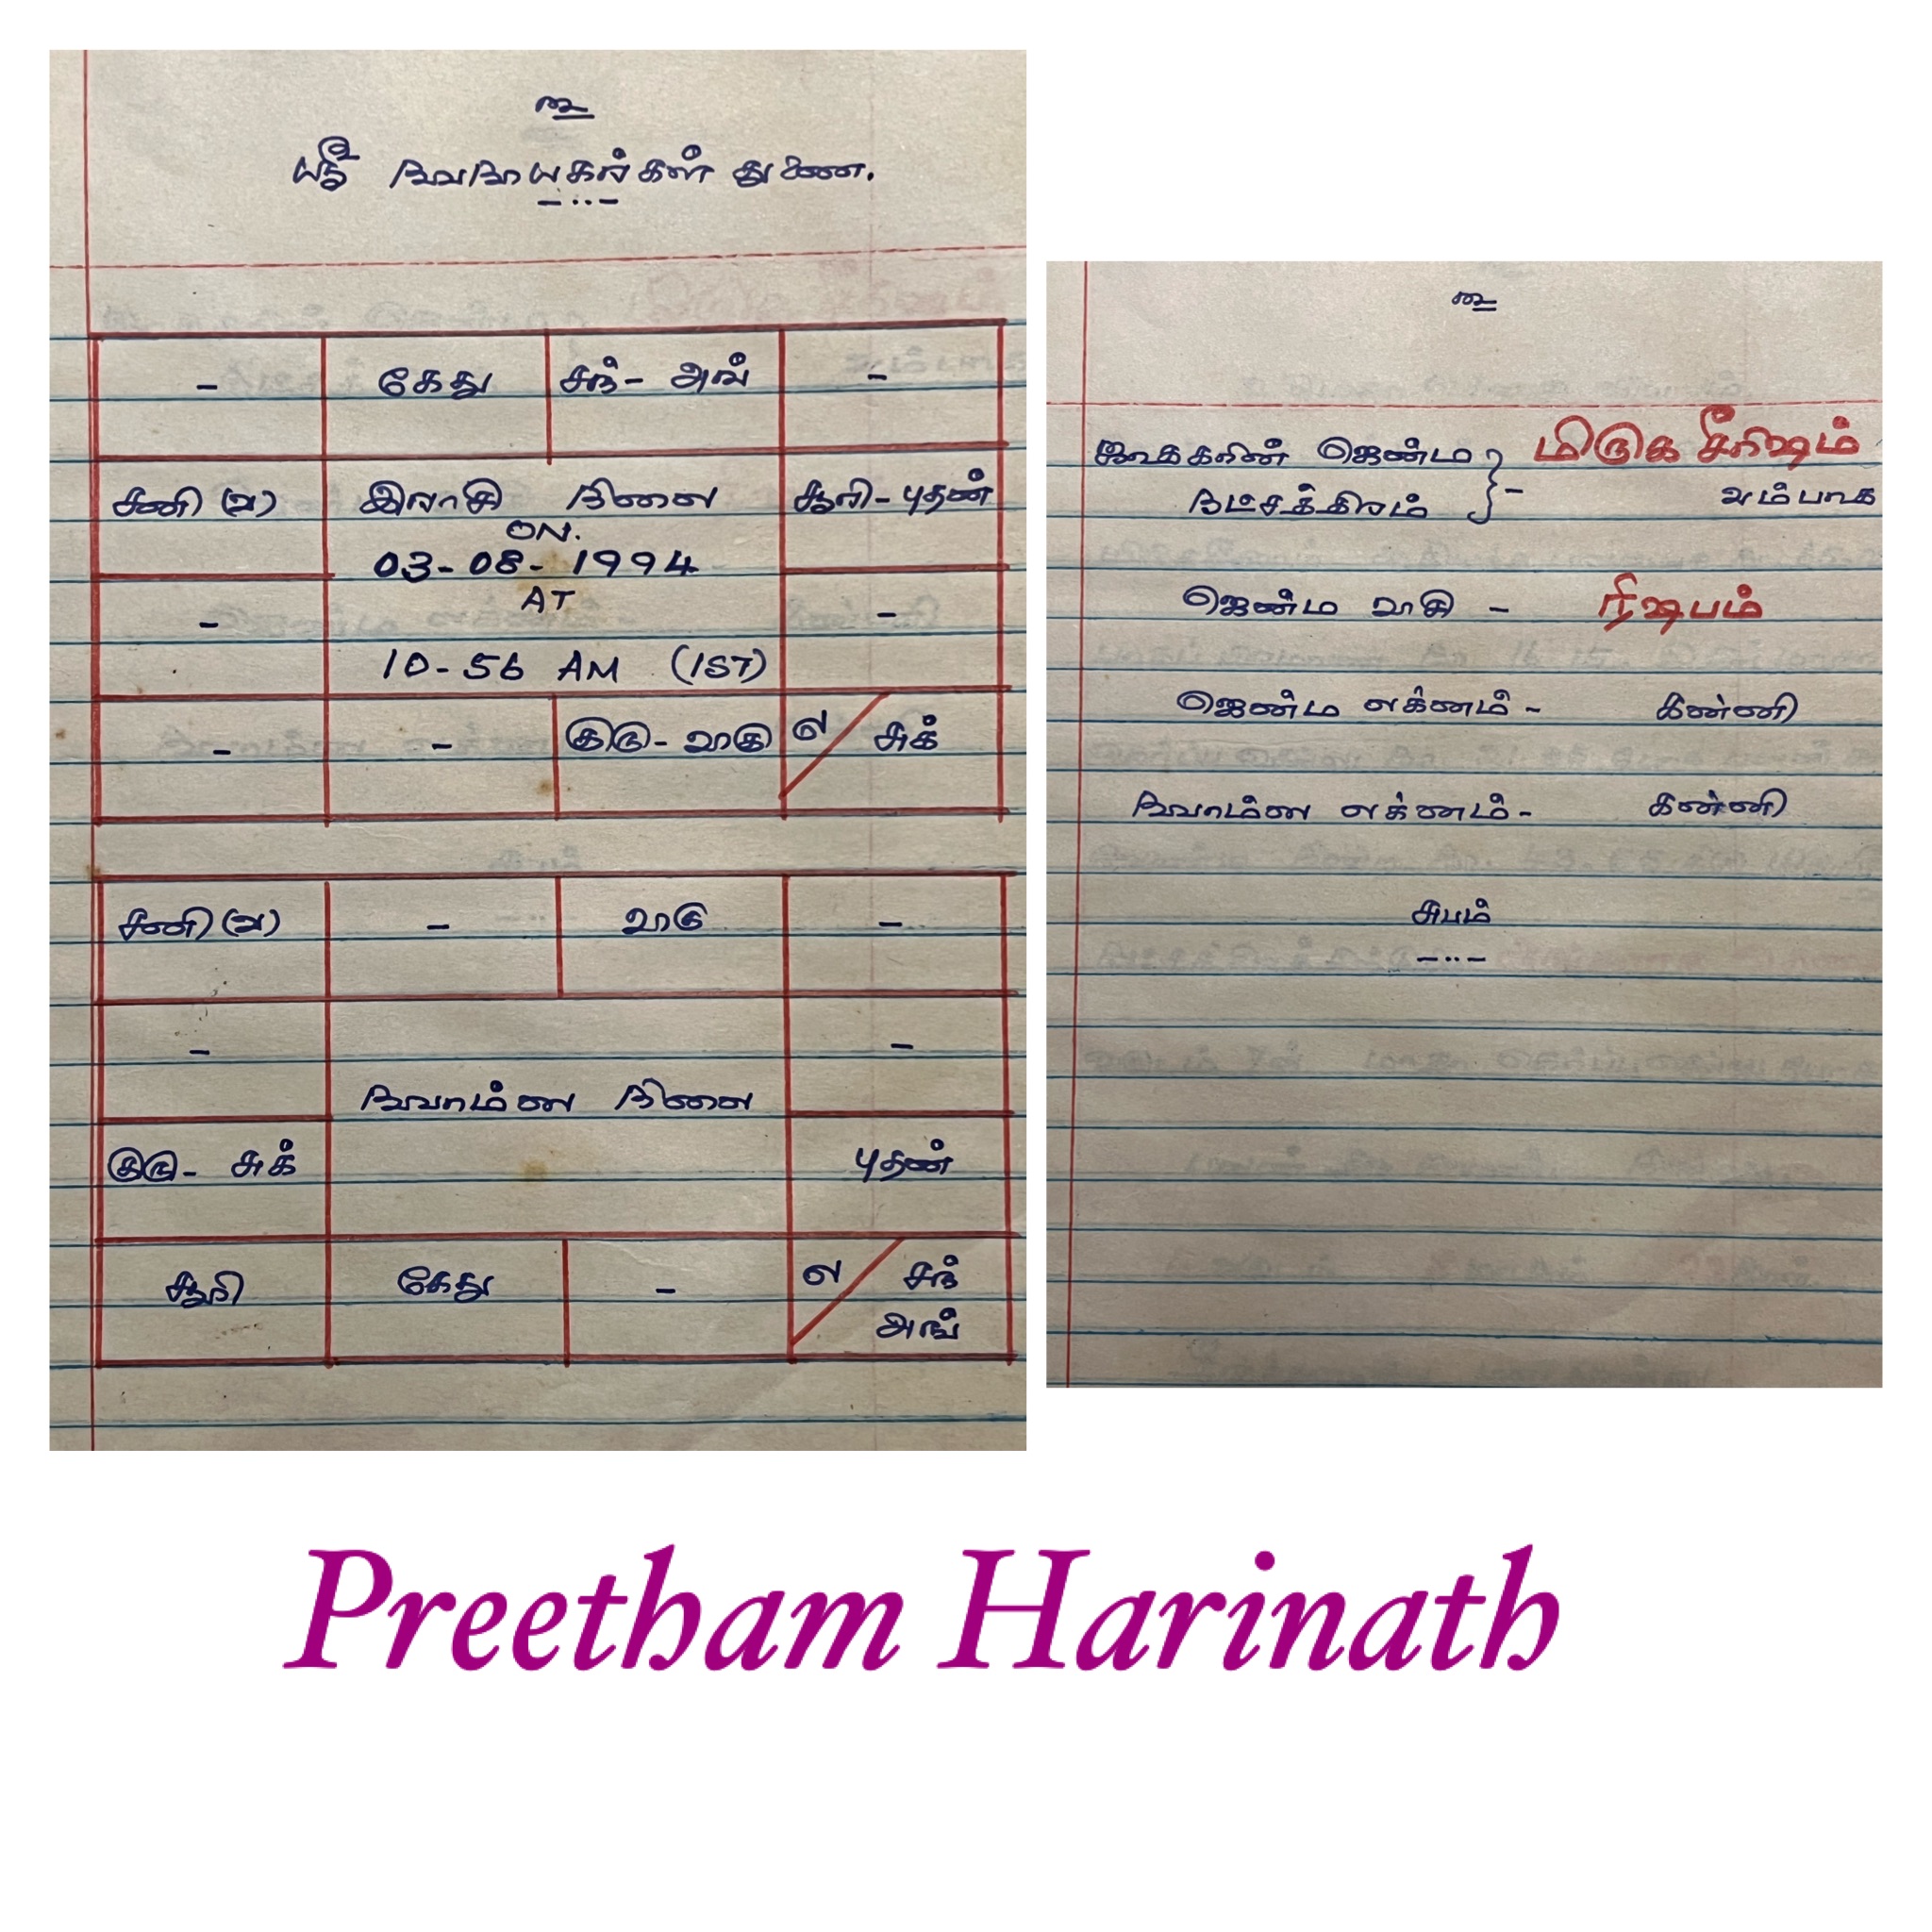 உ
ஸ்ரீ நவநாயகர்கள் துணை.
- கேது சந் - அங் -
சனி (வ) இராசி நிலை சூரி - புதன்
ON.
03-08-1994
AT
- -
10-56 AM (IST)
- - குரு - ராகு ல / சுக்
சனி (வ) - ராகு -
- -
நவாம்ச நிலை
குரு - சுக் புதன்
சூரி கேது - ல / சந்
அங்
உ
ஜாதகரின் ஜென்ம } - மிருகசீரிஷம்
நட்சத்திரம் 2ம் பாக
ஜென்ம ராசி - ரிஷபம்
ஜென்ம லக்னம் - கன்னி
நவாம்ச லக்னம் - கன்னி
சுபம்
Preetham Harinath